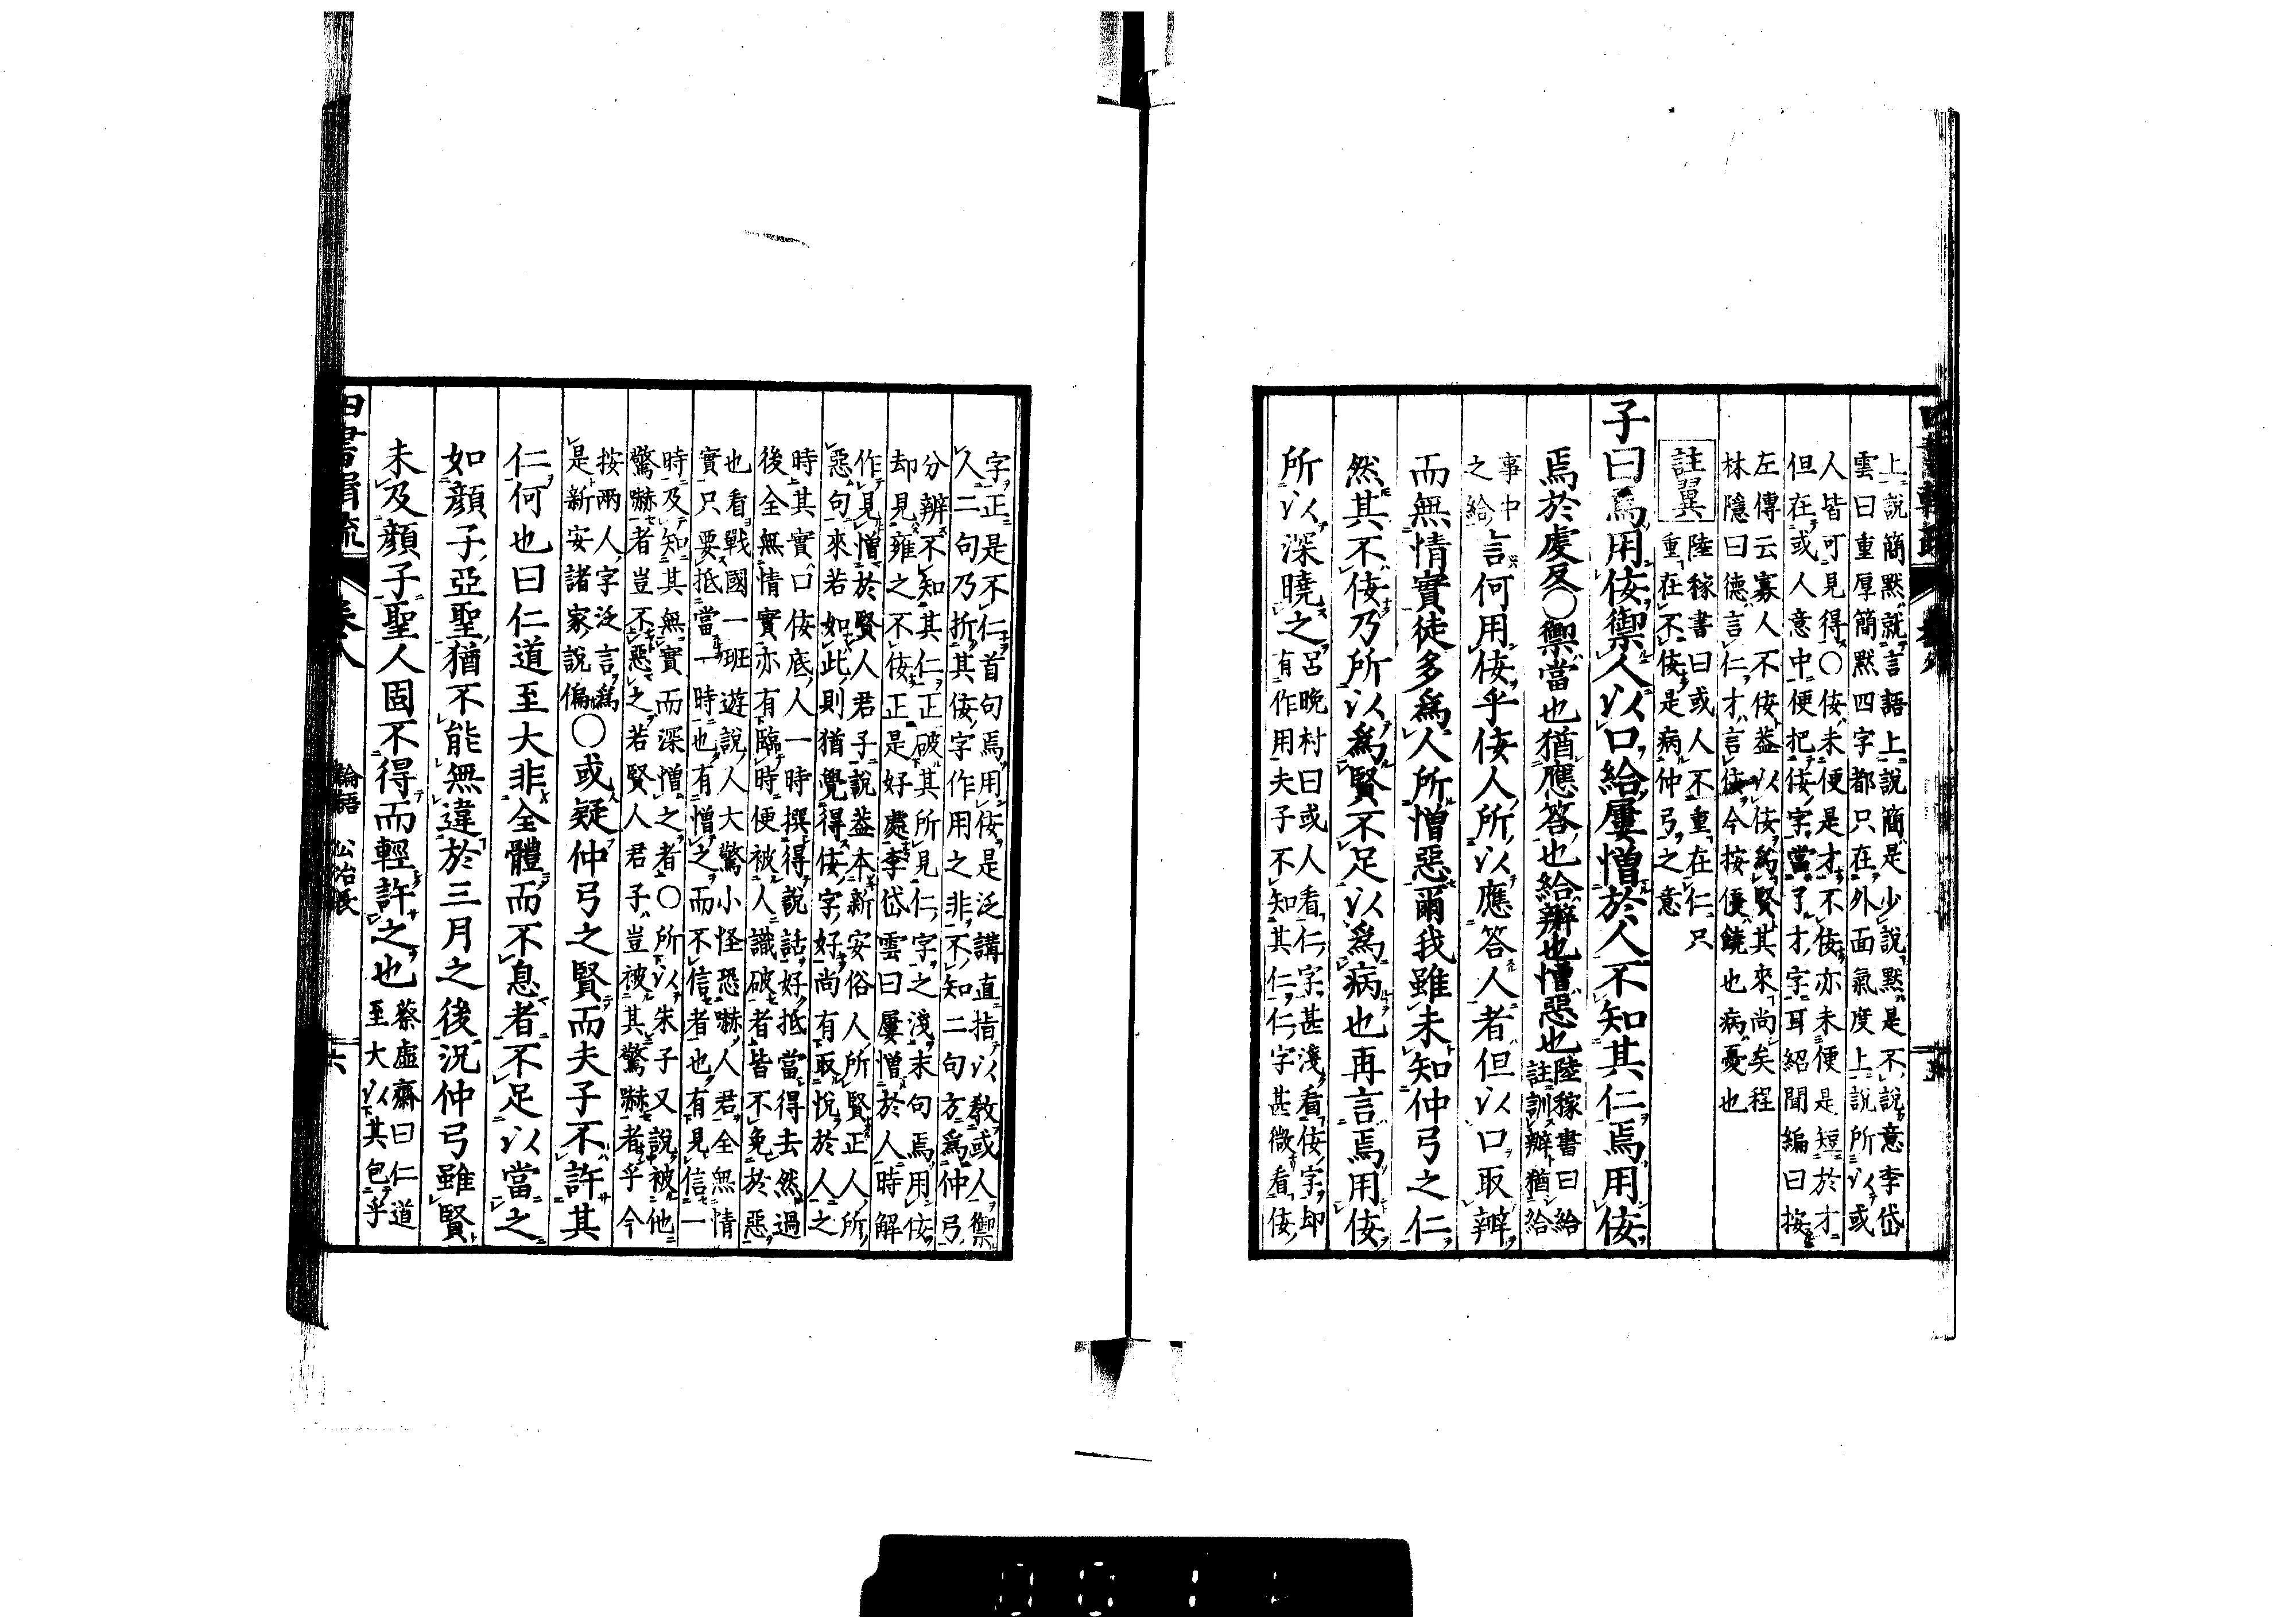 上說簡默就言語上說簡是少說默是不說意李岱
雲曰重厚簡默四字都只在外面氣度上說所以或
人皆可見得○佞未便是才不佞亦未便是短於才
但在或人意中便把佞字當了才字耳紹聞編曰按
左傳云寡人不佞葢以佞爲賢其來尚矣程
林隱曰德言仁才言佞今按優饒也病憂也
註翼
陸稼書曰或人不重在仁只
重在不佞是病仲弓之意
子曰焉用佞禦人以口給屢憎於人不知其仁焉用佞
焉於虔反○禦當也猶應答也給辨也憎惡也
陸稼書曰給
註訓辨猶給
事中
之給
言何用佞乎佞人所以應答人者但以口取辨
而無情實徒多爲人所憎惡爾我雖未知仲弓之仁
然其不佞乃所以爲賢不足以爲病也再言焉用佞
所以深曉之
呂晚村曰或人看仁字甚淺看佞字却
有作用夫子不知其仁仁字甚微看佞
字正是不仁首句焉用佞是泛講直指以教或人禦
人二句乃折其佞字作用之非不知二句方爲仲弓
分辨不知其仁正破其所見仁字之淺末句焉用佞
却見雍之不佞正是好處李岱雲曰屢憎於人時解
作見憎於賢人君子說葢本新安俗人所賢正人所
惡句來若如此則猶覺得佞字好尚有取悅於人之
時其實口佞底人一時撰得說話好抵當得去然過
後全無情實亦有臨時便被人識破者皆不免於惡
也看戰國一班遊說人大驚小怪恐嚇人君全無情
實只要抵當一時也有憎之而不信者也有見信一
時及知其無實而深憎之者○所以朱子又說被他
驚嚇者豈不惡之若賢人君子豈被其驚嚇者乎今
按兩人字泛言爲
是新安諸家說偏
○或疑仲弓之賢而夫子不許其
仁何也曰仁道至大非全體而不息者不足以當之
如顏子亞聖猶不能無違於三月之後況仲弓雖賢
未及顏子聖人固不得而輕許之也
蔡虛齋曰仁道
至大以其包乎
論語 公冶長
六